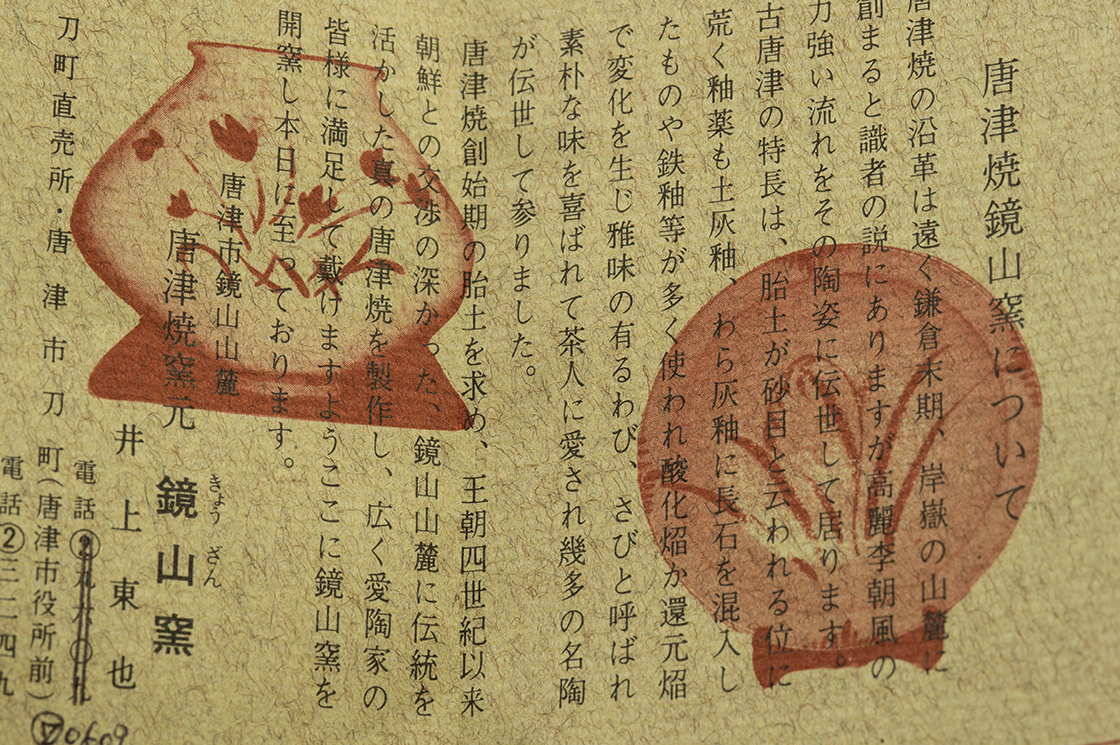 唐津焼鏡山窯について
唐津焼の沿革は遠く鎌倉末期、岸嶽の山麓に
創まると識者の説にありますが高麗李朝風の
力強い流れをその陶姿に伝世して居ります。
古唐津の特長は、胎土が砂目と云われる位に
荒く釉薬も土灰釉、わら灰釉に長石を混入し
たものや鉄釉等が多く使われ酸化焰か還元焰
で変化を生じ雅味の有るわび、さびと呼ばれ
素朴な味を喜ばれて茶人に愛され幾多の名陶
が伝世して参りました。
唐津焼創始期の胎土を求め、王朝四世紀以来
朝鮮との交渉の深かった、鏡山山麓に伝統を
活かした真の唐津焼を製作し、広く愛陶家の
皆様に満足して戴けますようここに鏡山窯を
開窯し本日に至っております。
唐津市鏡山山麓
唐津焼窯元 鏡山窯
きょう ざん
井上東也
電話
刀町直売所・唐津市刀町(唐津市役所前)
電話②三二四九
0609